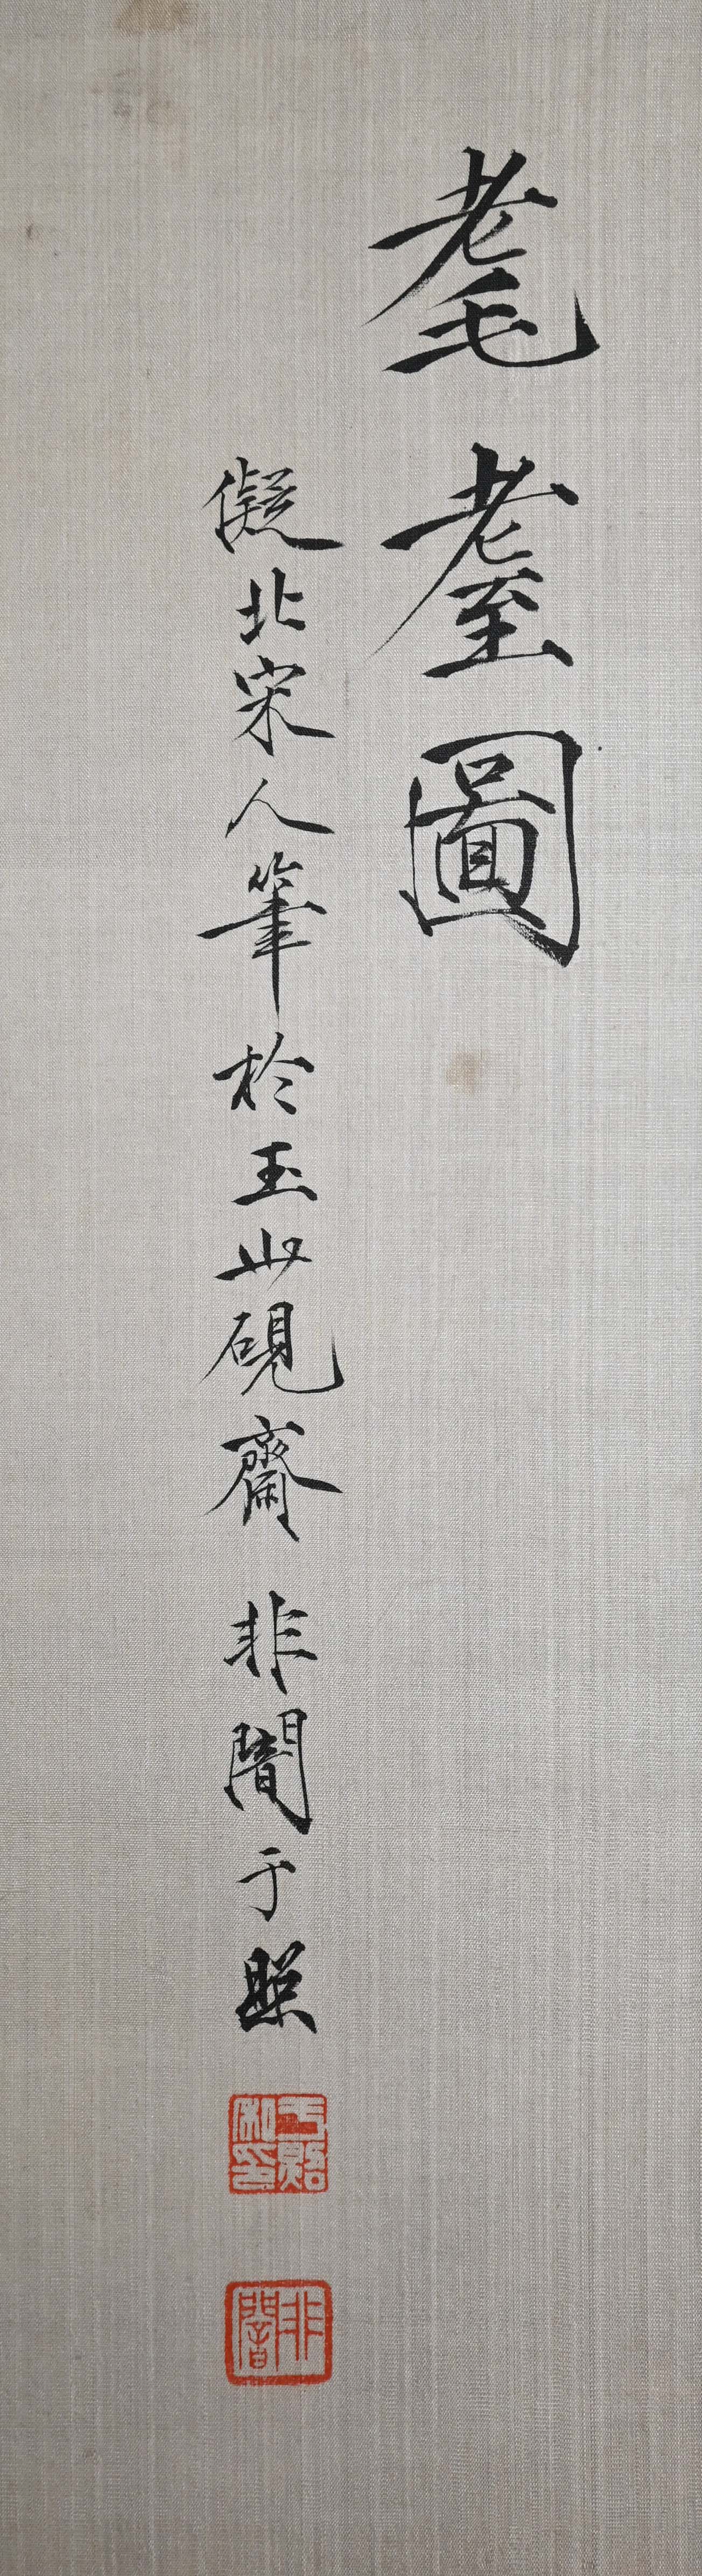 耄耋圖
儗北宋人筆於玉山硯齋 非闇于照
于照私印
非闇